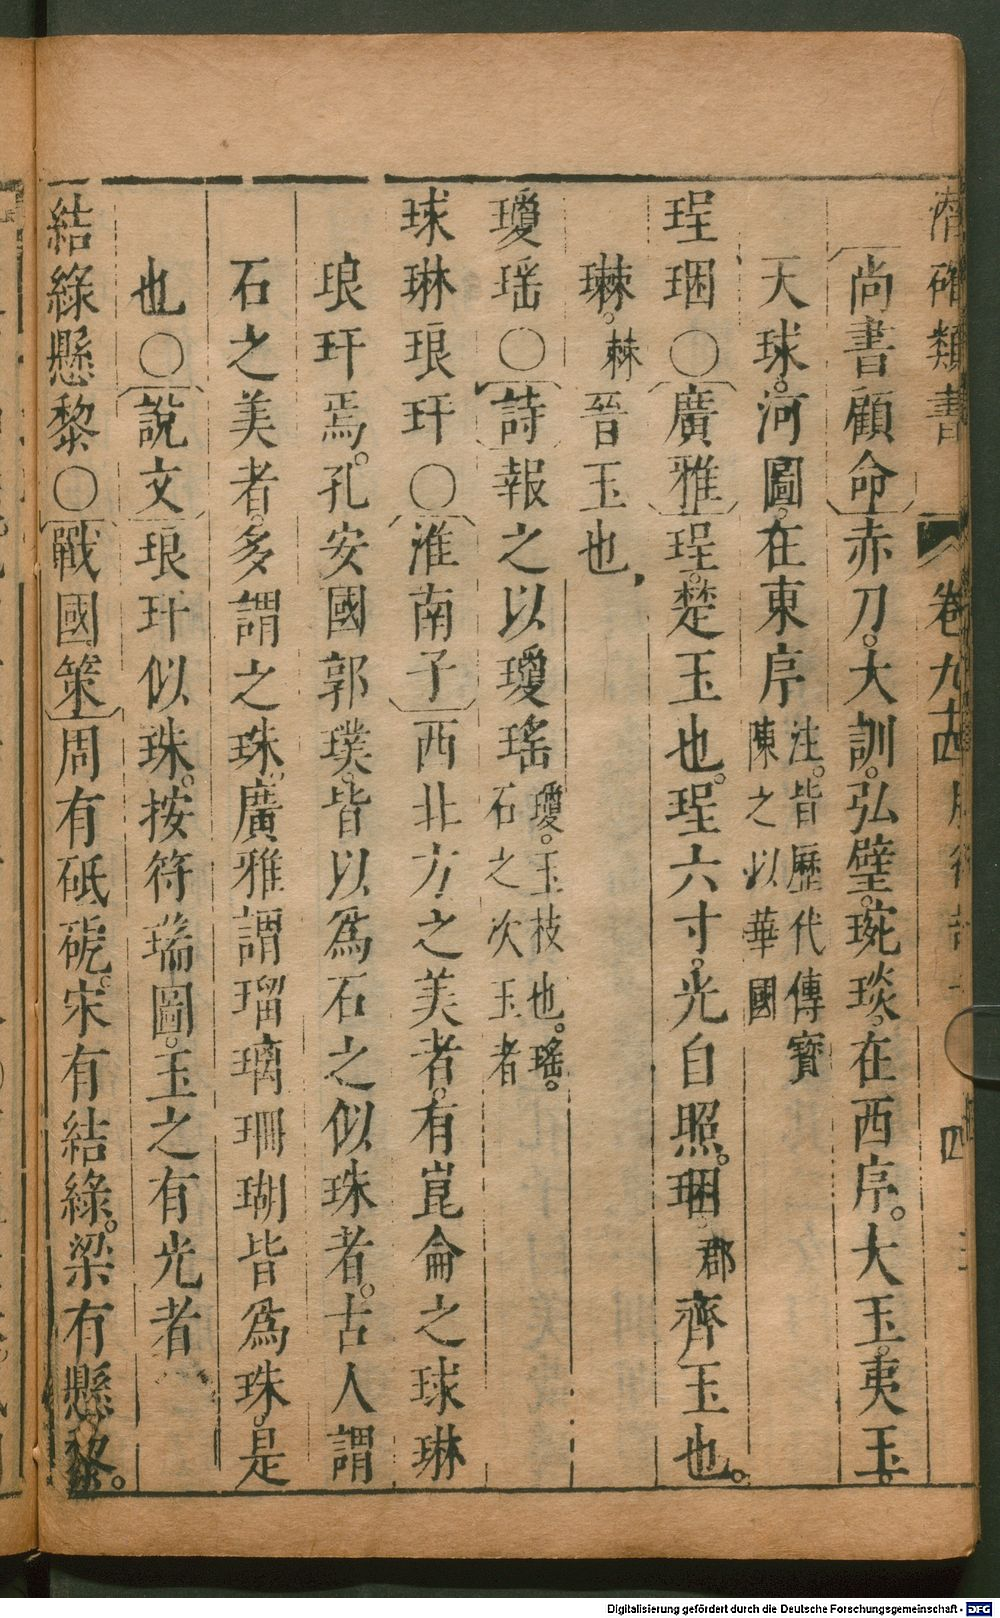 潛確類書 卷九十四 四
尚書顧命赤刀。大訓。弘璧。琬琰。在西序。大玉。夷玉。
天球。河圖。在東序注。皆歷代傳寶陳之以華國
珵珚○廣雅珵。楚玉也。珵六寸。光自照。珚。郡齊玉也。
㻋。棘晉玉也,
瓊瑤○詩報之以瓊瑤瓊。玉枝也。瑤。石之次玉者
球琳琅玕○淮南子西北方之美者。有崑侖之球琳
琅玕焉。孔安國郭璞。皆以爲石之似珠者。古人謂
石之美者。多謂之珠。廣雅謂瑠璃珊瑚皆爲珠。是
也○說文。琅玕似珠。按符瑞圖。玉之有光者
結綠懸黎○戰國策周有砥砨。宋有結綠。梁有懸黎。
Digitalisierung gefördert durch die Deutsche Forschungsgemeinschaft - DFG